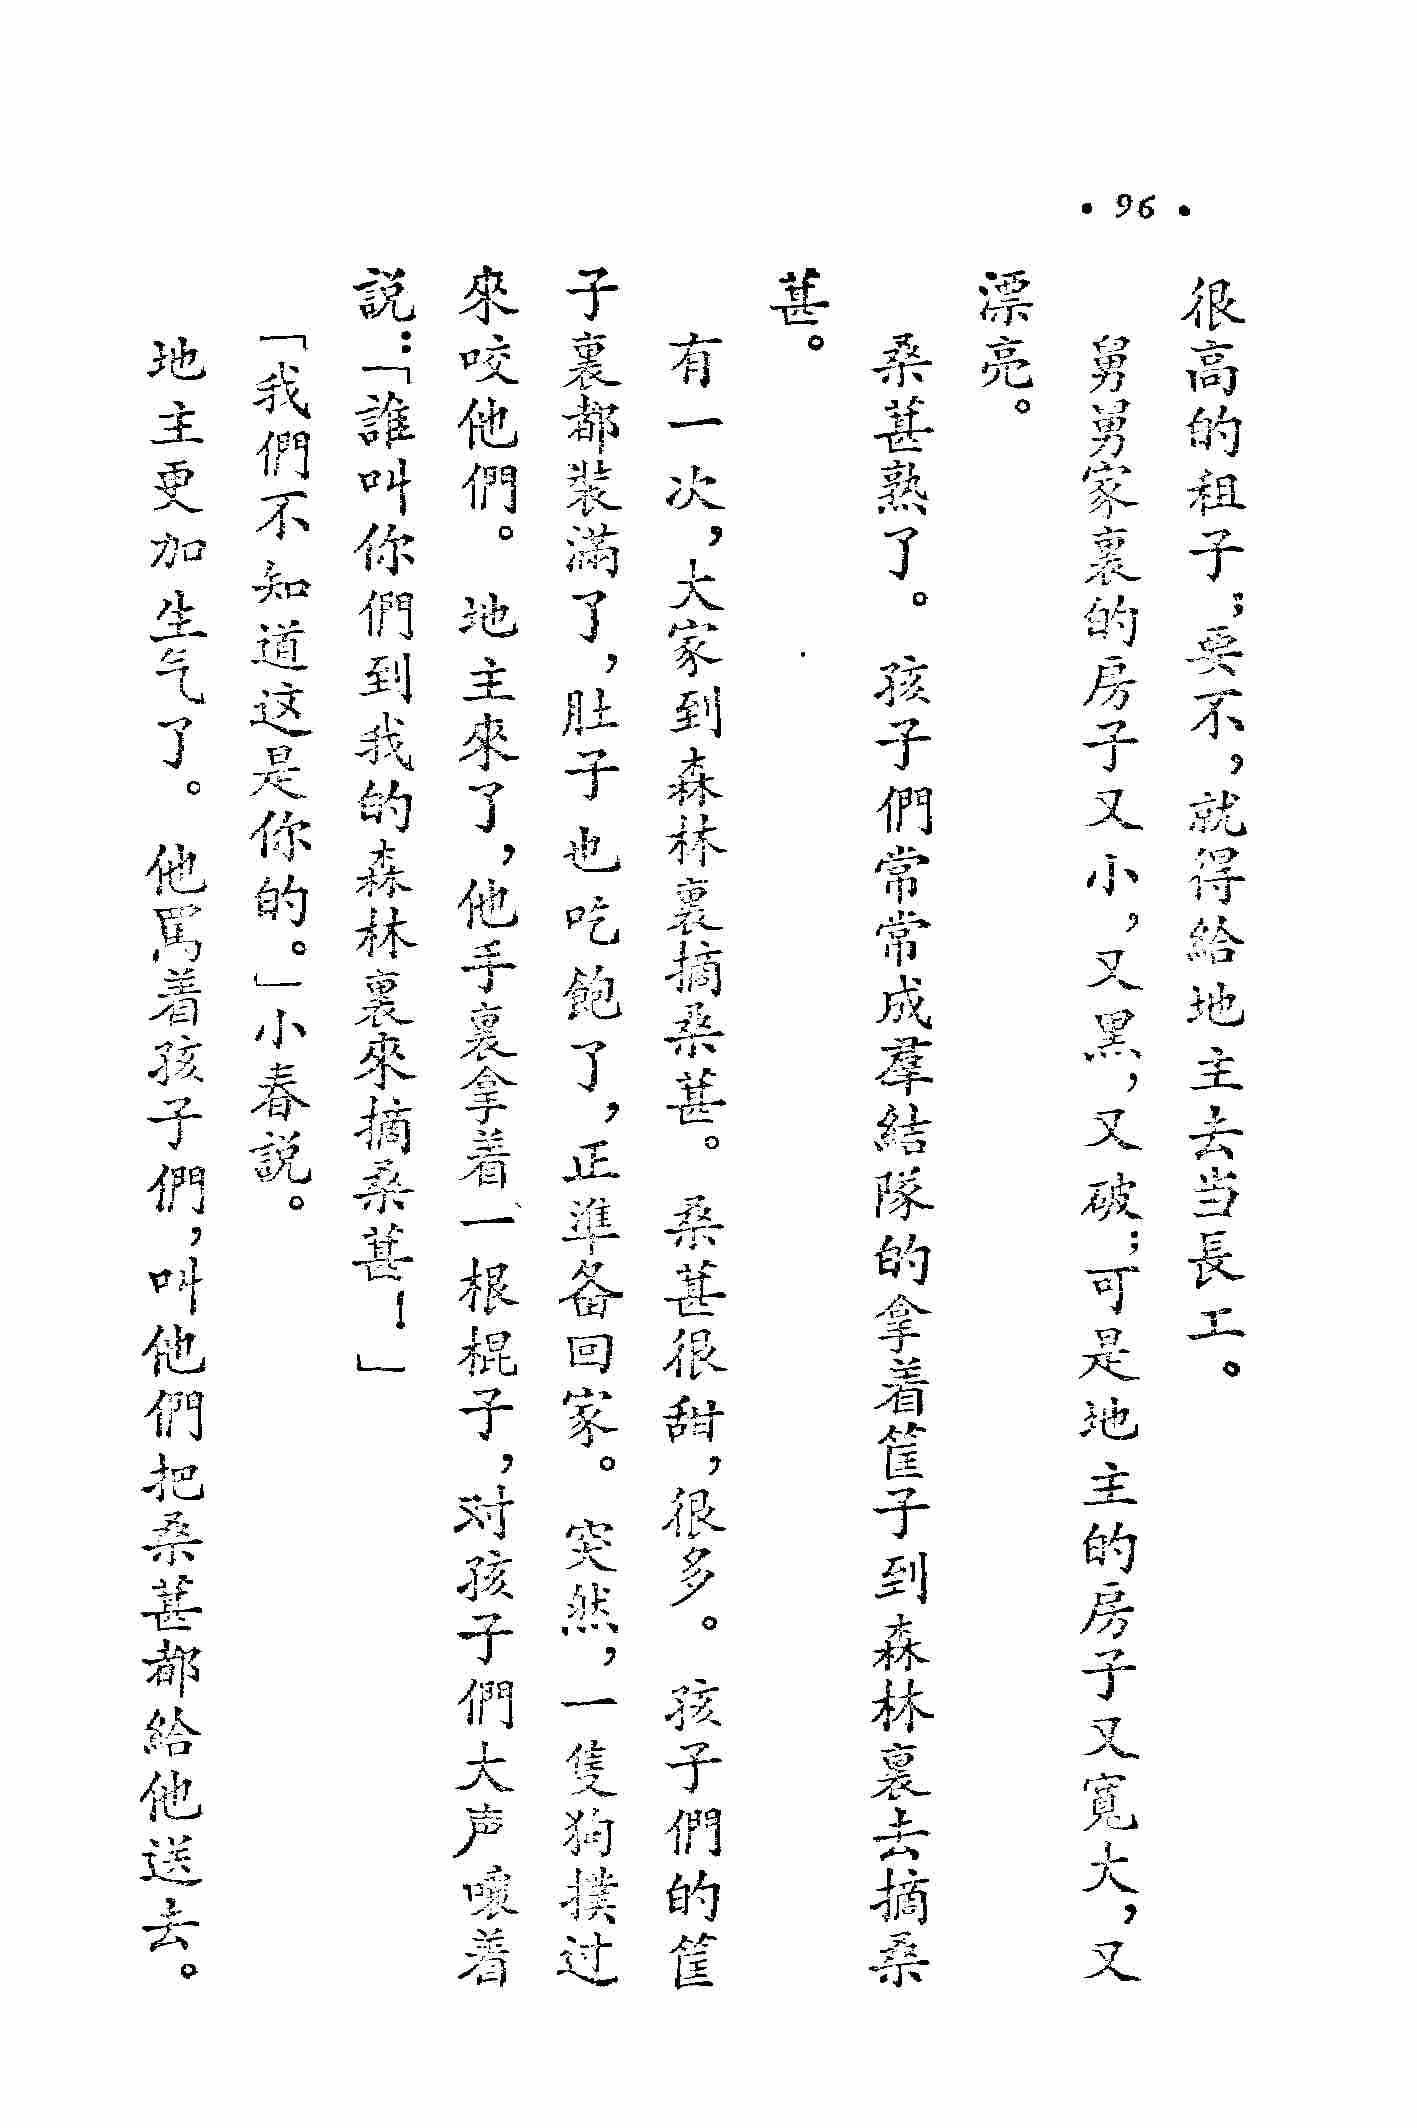 • 96 •
很高的租子；要不，就得給地主去当長工。
舅舅家裏的房子又小，又黑，又破；可是地主的房子又寬大，又
漂亮。
桑葚熟了。孩子們常常成羣結隊的拿着筐子到森林裏去摘桑
葚。
有一次，大家到森林裏摘桑葚。桑葚很甜，很多。孩子們的筐
子裏都装滿了，肚子也吃飽了，正準备回家。突然，一隻狗撲过
來咬他們。地主來了，他手裏拿着一根棍子，对孩子們大声嚷着
説：「誰叫你們到我的森林裏來摘桑葚！」
「我們不知道这是你的。」小春説。
地主更加生气了。他罵着孩子們，叫他們把桑葚都給他送去。